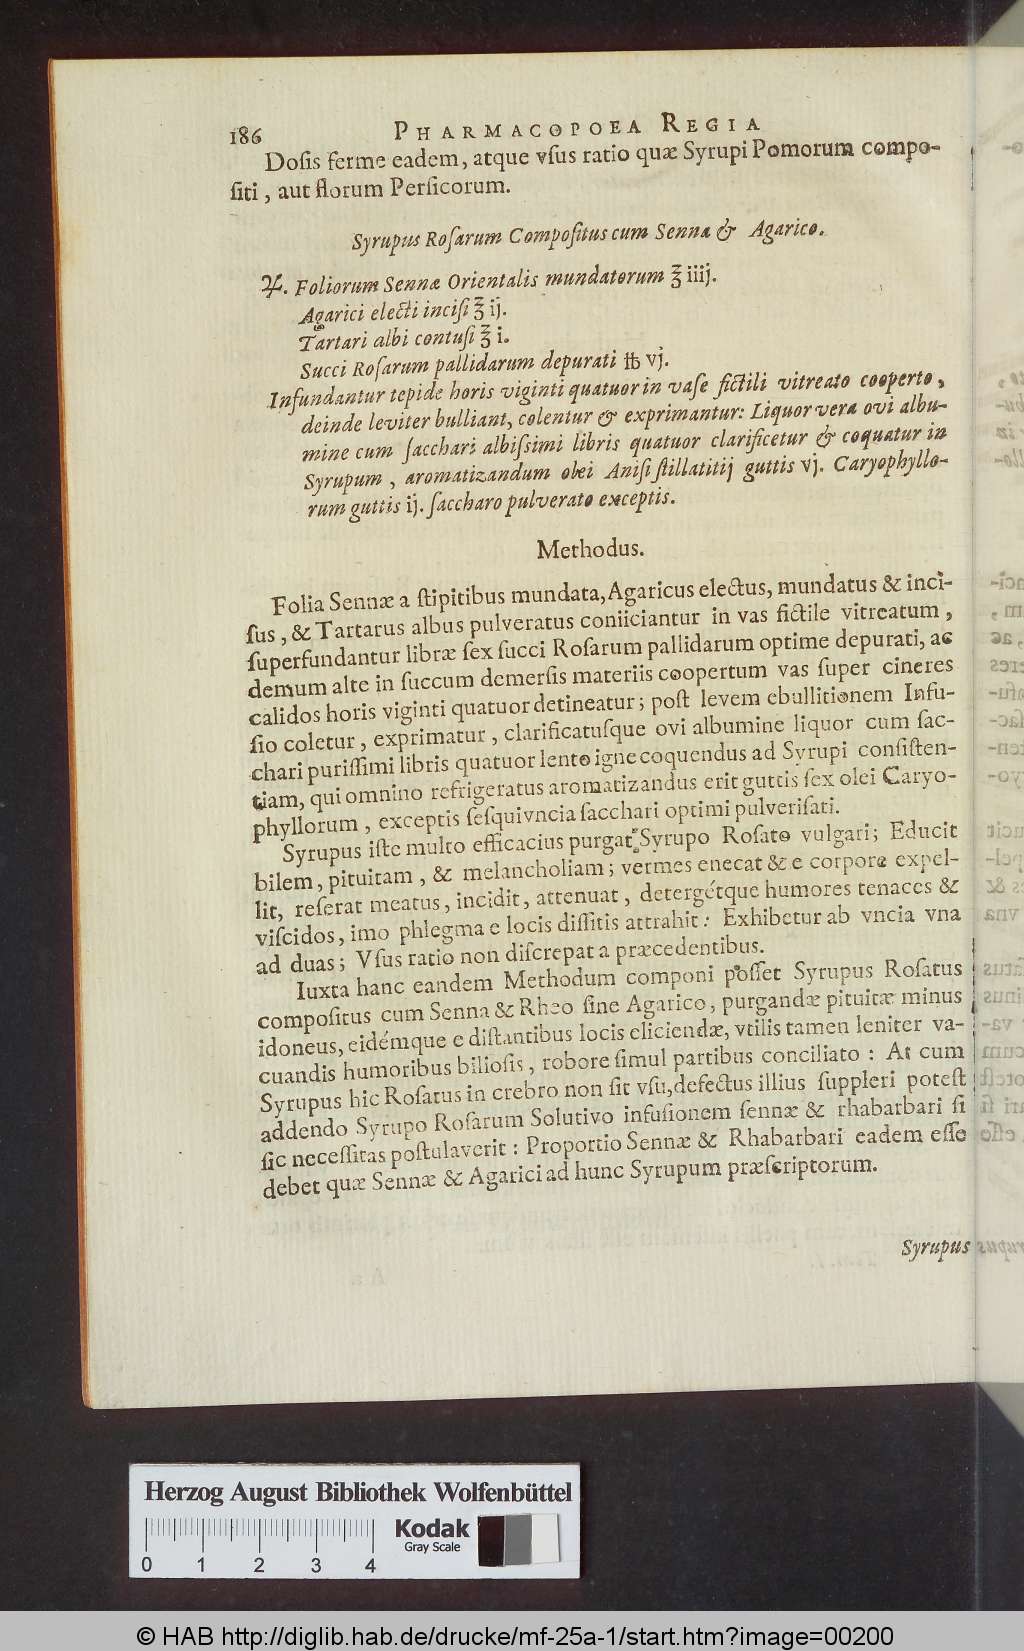 186 PHARMACOPOEA REGIA
Doſis ferme eadem, atque vſus ratio quæ Syrupi Pomorum compo-
ſiti, aut florum Perſicorum.
Syrupus Roſarum Compoſitus cum Senna & Agarico.
♃. Foliorum Sennæ Orientalis mundatorum ℥ iiij.
Agarici electi inciſi ℥ ij.
Tartari albi contuſi ℥ i.
Succi Roſarum pallidarum depurati ℔ vj.
Infundantur tepide horis viginti quatuor in vaſe fictili vitreato cooperto,
deinde leviter bulliant, colentur & exprimantur: Liquor vera ovi albu-
mine cum ſacchari albiſsimi libris quatuor clarificetur & coquatur in
Syrupum, aromatizandum olei Aniſi ſtillatitij guttis vj. Caryophyllo-
rum guttis ij. ſaccharo pulverato exceptis.
Methodus.
Folia Sennæ a ſtipitibus mundata, Agaricus electus, mundatus & inci-
ſus, & Tartarus albus pulveratus coniiciantur in vas fictile vitreatum,
ſuperfundantur libræ ſex ſucci Roſarum pallidarum optime depurati, ac
demum alte in ſuccum demerſis materiis coopertum vas ſuper cineres
calidos horis viginti quatuor detineatur; poſt levem ebullitionem Infu-
ſio coletur, exprimatur, clarificatuſque ovi albumine liquor cum ſac-
chari puriſſimi libris quatuor lento igne coquendus ad Syrupi conſiſten-
tiam, qui omnino refrigeratus aromatizandus erit guttis ſex olei Caryo-
phyllorum, exceptis ſeſquivncia ſacchari optimi pulveriſati.
Syrupus iſte multo efficacius purgat Syrupo Roſato vulgari; Educit
bilem, pituitam, & melancholiam; vermes enecat & e corpore expel-
lit, reſerat meatus, incidit, attenuat, detergétque humores tenaces &
viſcidos, imo phlegma e locis diſſitis attrahit: Exhibetur ab vncia vna
ad duas; Vſus ratio non diſcrepat a præcedentibus.
Iuxta hanc eandem Methodum componi poſſet Syrupus Roſatus
compoſitus cum Senna & Rheo ſine Agarico, purgandæ pituitæ minus
idoneus, eidémque e diſtantibus locis eliciendæ, vtilis tamen leniter va-
cuandis humoribus bilioſis, robore ſimul partibus conciliato: At cum
Syrupus hic Roſatus in crebro non ſit vſu, defectus illius ſuppleri poteſt
addendo Syrupo Roſarum Solutivo infuſionem ſennæ & rhabarbari ſi
ſic neceſſitas poſtulaverit: Proportio Sennæ & Rhabarbari eadem eſſe
debet quæ Sennæ & Agarici ad hunc Syrupum præſcriptorum.
Syrupus
Herzog August Bibliothek Wolfenbüttel
Kodak
Gray Scale
0 1 2 3 4
© HAB http://diglib.hab.de/drucke/mf-25a-1/start.htm?image=00200